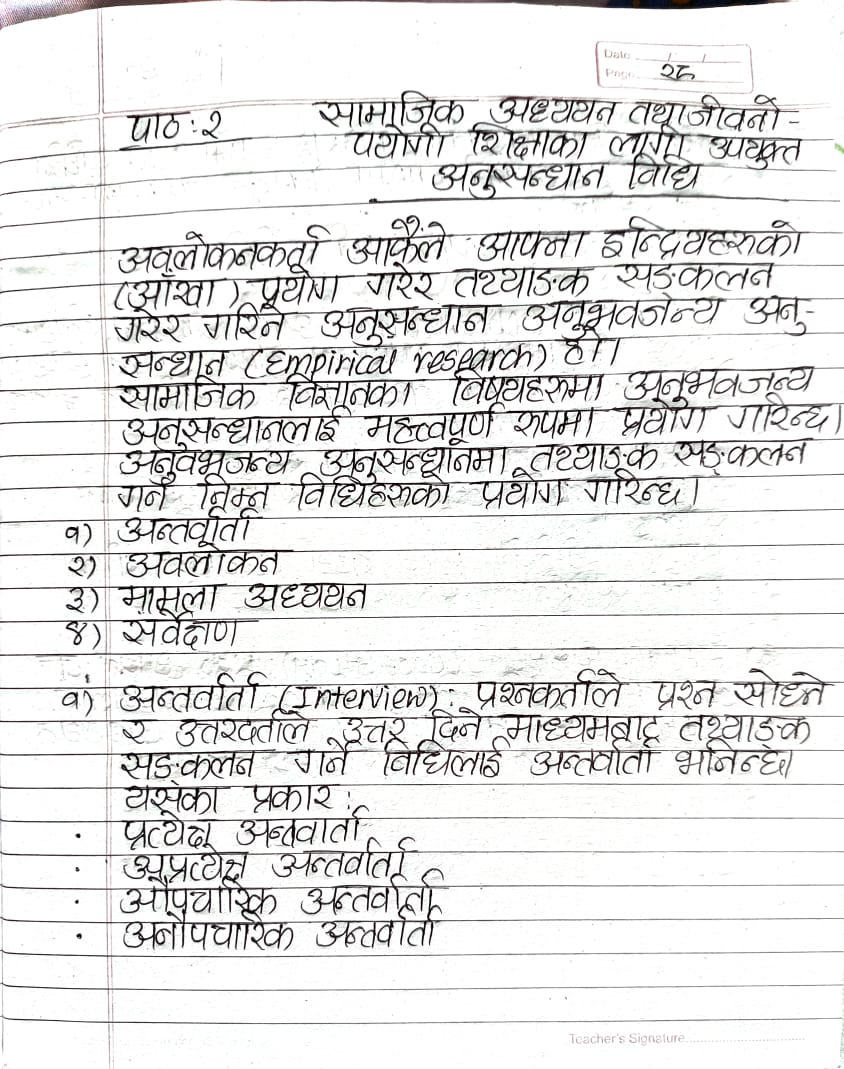 Date / /
Page २८
पाठ : २ सामाजिक अध्ययन तथा जीवनो-
पयोगी शिक्षाका लागी उपयुक्त
अनुसन्धान विधि
अवलोकनकर्ता आफैंले आफ्ना इन्द्रियहरुको
(आँखा) प्रयोग गरेर तथ्याङ्क सङ्कलन
गरेर गरिने अनुसन्धान अनुभवजन्य अनु-
सन्धान (Empirical research) हो।
सामाजिक विज्ञानका विषयहरुमा अनुभवजन्य
अनुसन्धानलाई महत्वपूर्ण रुपमा प्रयोग गरिन्छ।
अनुवभजन्य अनुसन्धानमा तथ्याङ्क सङ्कलन
गर्न निम्न विधिहरुको प्रयोग गरिन्छ।
१) अन्तर्वार्ता
२) अवलोकन
३) मामला अध्ययन
४) सर्वेक्षण
१) अन्तर्वार्ता (Interview) : प्रश्नकर्ताले प्रश्न सोध्ने
र उत्तरदर्ताले उत्तर दिने माध्यमबाट तथ्याङ्क
सङ्कलन गर्ने विधिलाई अन्तर्वार्ता भनिन्छ।
यसका प्रकार :
· प्रत्येक्ष अन्तर्वार्ता
· अप्रत्येक्ष अन्तर्वार्ता
· औपचारिक अन्तर्वार्ता
· अनौपचारिक अन्तर्वार्ता
Teacher's Signature